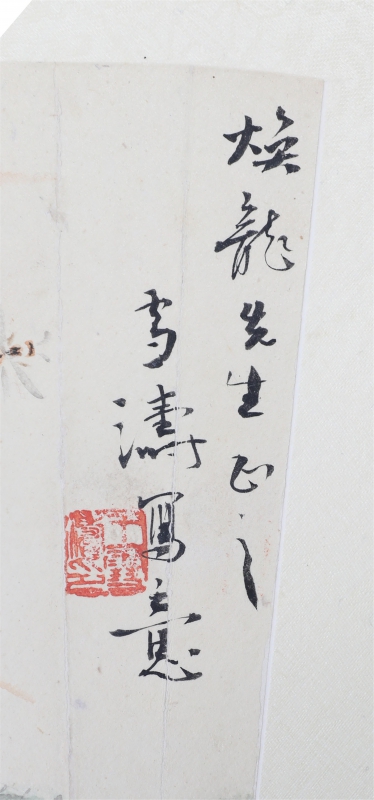 焕龍先生正之
雪濤寫意